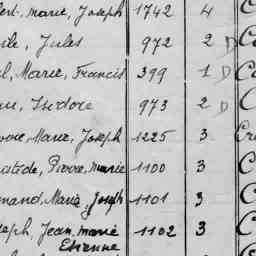 bert, Marie, Joseph 1742 4 C
ile, Jules 972 2 D C
l, Marie, Francis 399 1 D Ca
Isidore 973 2 D C
Marie, Joseph 1225 3 Cr
Pierre, Marie 1100 3 C
mand, Maria, Joseph 1101 3 C
seph, Jean, Marie 1102 3 C
Etienne